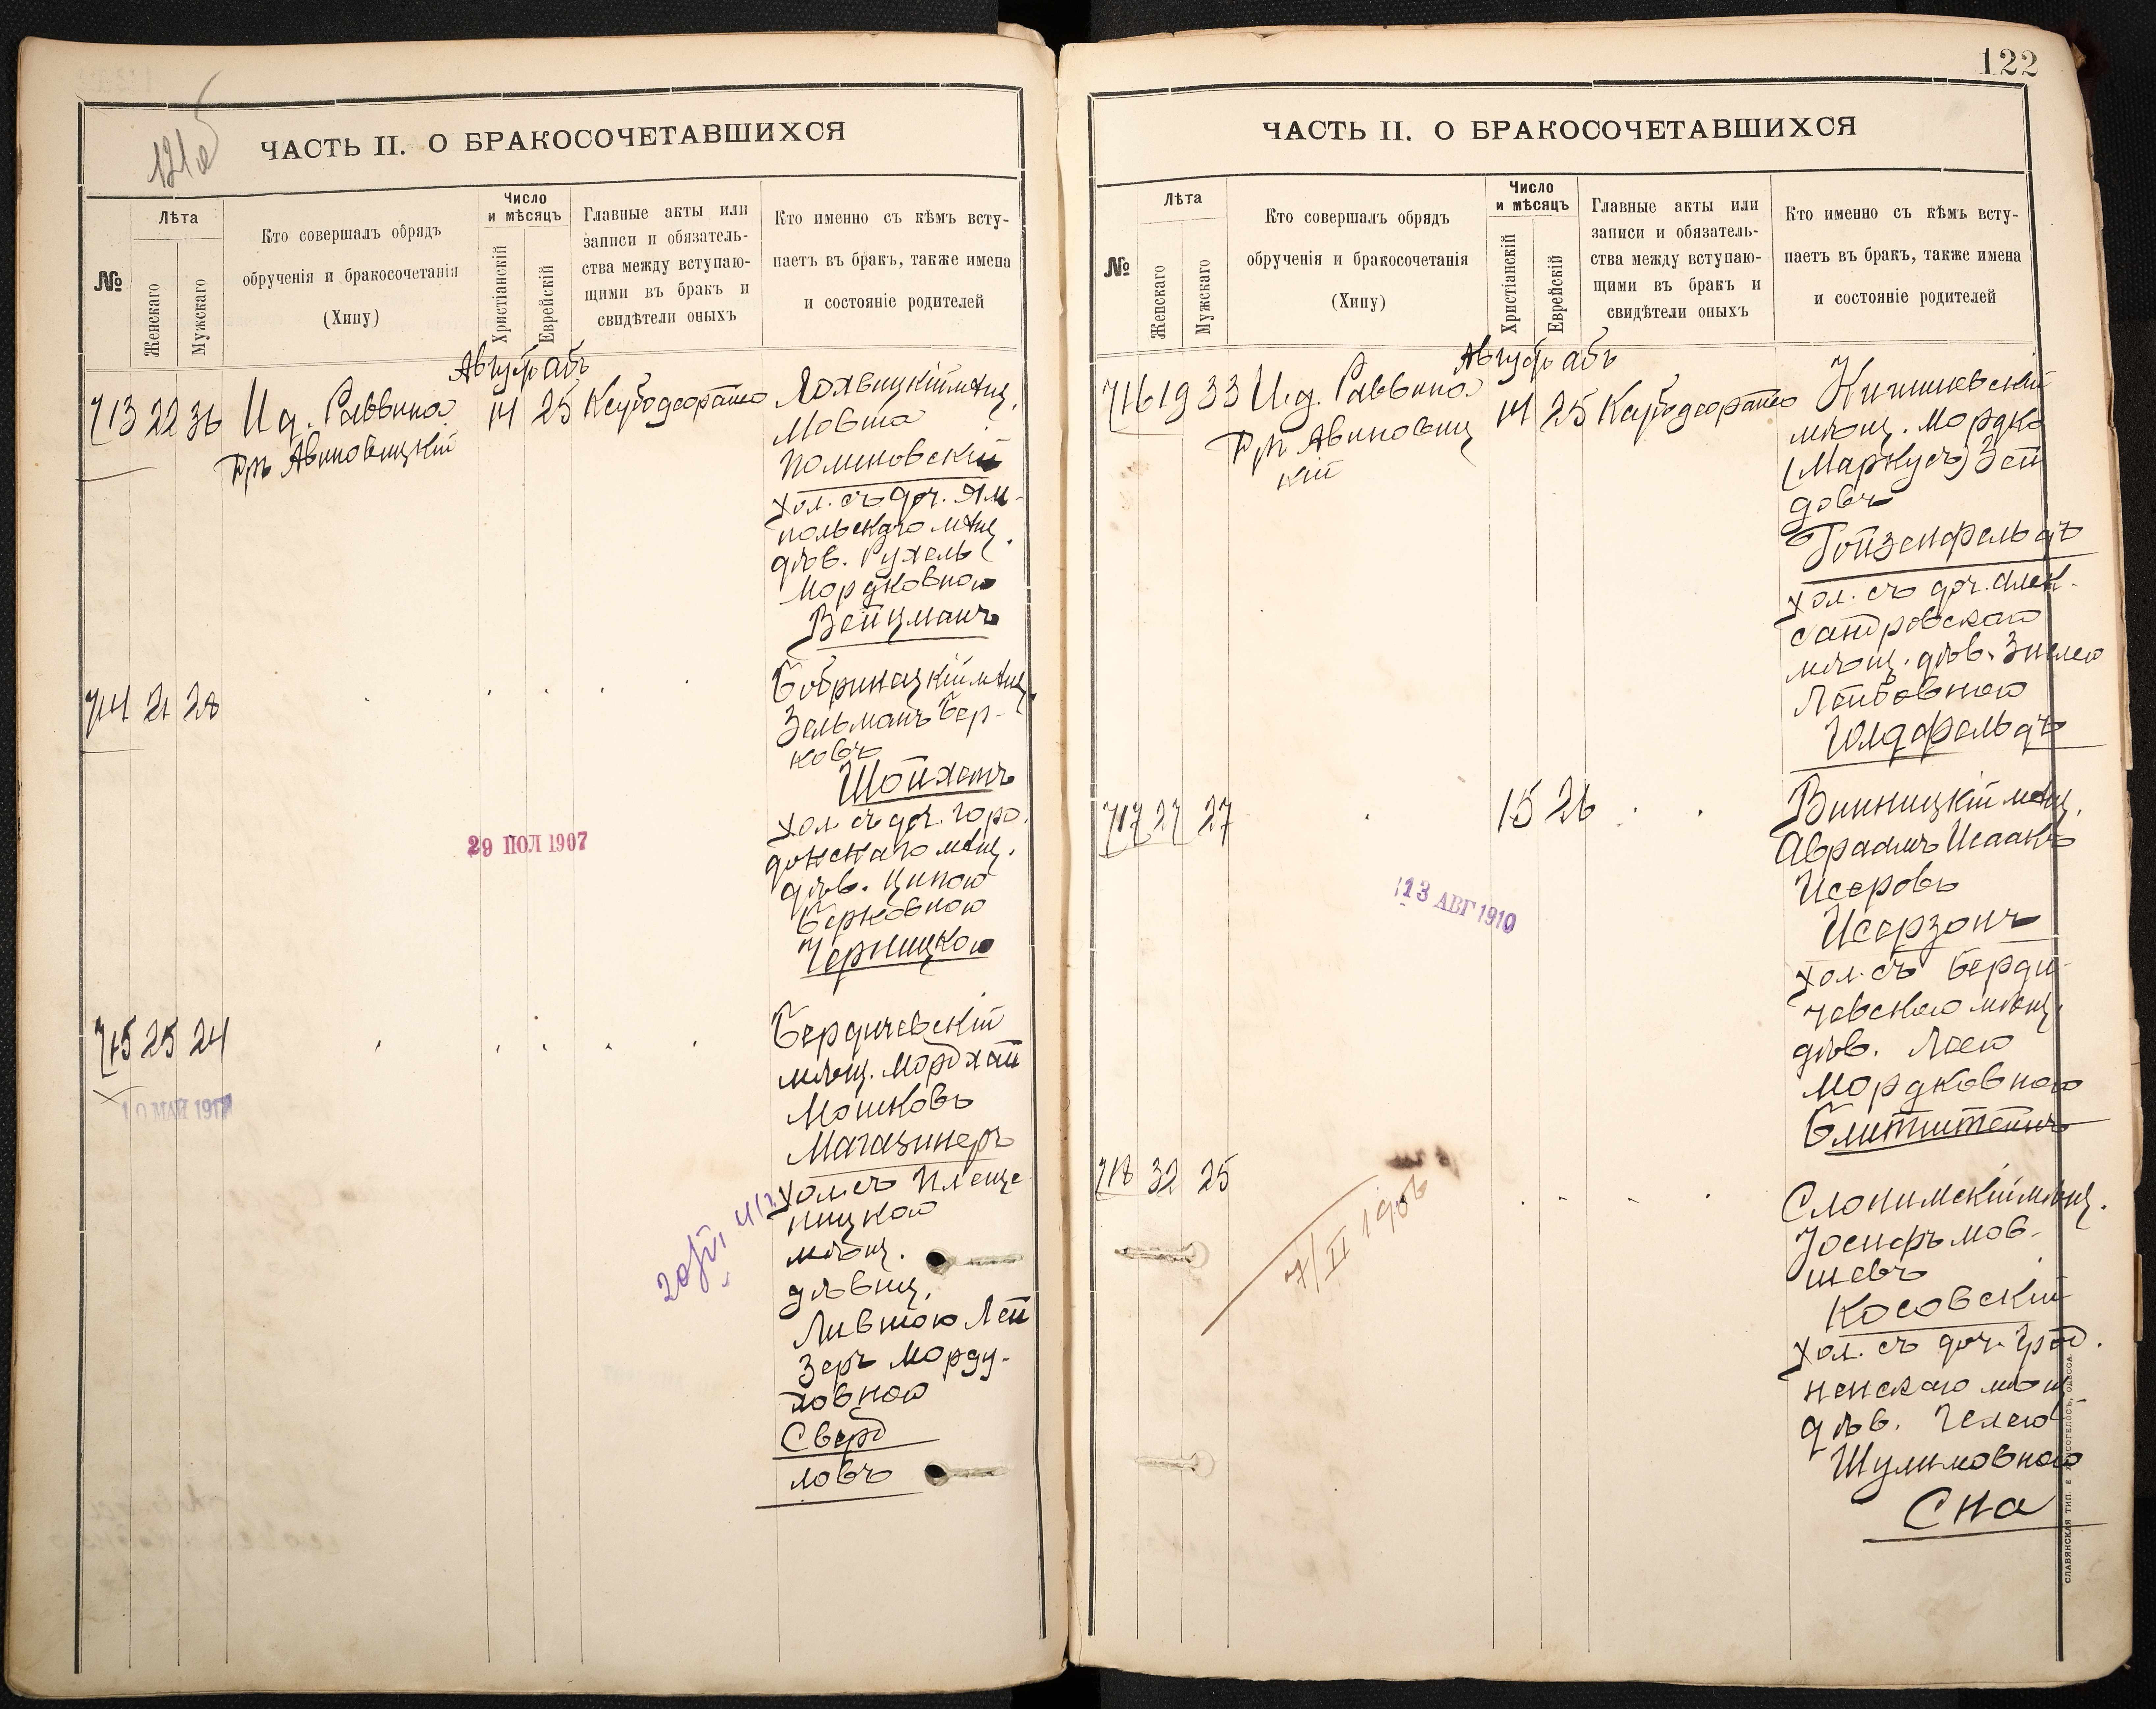 121 об
ЧАСТЬ II. О БРАКОСОЧЕТАВШИХСЯ
№
Лѣта
Женскаго
Мужскаго
Кто совершалъ обрядъ
обрученія и бракосочетанія
(Хипу)
Число
и мѣсяцъ
Христіанскій
Еврейскій
Главные акты или
записи и обязатель-
ства между вступаю-
щими въ бракъ и
свидѣтели оныхъ
Кто именно съ кѣмъ всту-
паетъ въ бракъ, также имена
и состояніе родителей
Августъ Абъ
713 22 36 И.д. Раввина
Гр. Авиновицкій
14 25
мѣщ.
Мовша
Полиновскій
хол. съ доч. Ям-
польскаго мѣщ.
дѣв. Рухель
Мордковною
Вейцманъ
714 21 28
Бобринецкій мѣщ.
Зельманъ Бер-
ковъ
Шойхетъ
хол. съ доч. Горо-
мѣщ.
дѣв. Ципою
Берковною
Черницкою
29 ІЮЛ 1907
715 25 24
Бердичевскій
мѣщ. Мордхай
Мошковъ
Магазинеръ
хол. съ Плеще-
ницкою
мѣщ.
дѣвиц.
Лившою Лей
Зеръ Морду-
ховною
Сверд
ловъ
10 МАЙ 1917
122
ЧАСТЬ II. О БРАКОСОЧЕТАВШИХСЯ
№
Лѣта
Женскаго
Мужскаго
Кто совершалъ обрядъ
обрученія и бракосочетанія
(Хипу)
Число
и мѣсяцъ
Христіанскій
Еврейскій
Главные акты или
записи и обязатель-
ства между вступаю-
щими въ бракъ и
свидѣтели оныхъ
Кто именно съ кѣмъ всту-
паетъ въ бракъ, также имена
и состояніе родителей
Августъ Абъ
716 19 33 И.д. Раввина
Гр. Авиновиц
кій
14 25
Кишиневскій
мѣщ. Мордко
(Маркусъ) Зей
довъ
Гойзенфельдъ
хол. съ доч. Алек-
сандровскаго
мѣщ. дѣв. Энею
Лейбовною
Голдфельдъ
717 27 27
15 26
Винницкій мѣщ.
Авраамъ Исаакъ
Исеровъ
Исерзонъ
хол. съ Берди-
чевскою мѣщ.
дѣв. Леею
Мордковною
Блитштейнъ
13 АВГ 1910
718 32 25
Слонимскій мѣщ.
Іосифъ Мов-
шевъ
Косовскій
хол. съ доч. Грод-
ненскаго мѣщ.
дѣв. Генею
Шулимовною
Сна
7/II 1906